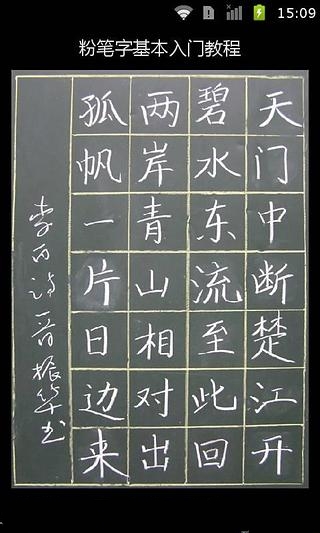 15:09
粉笔字基本入门教程
天门中断楚江开
碧水东流至此回
两岸青山相对出
孤帆一片日边来
李白诗一首振华书